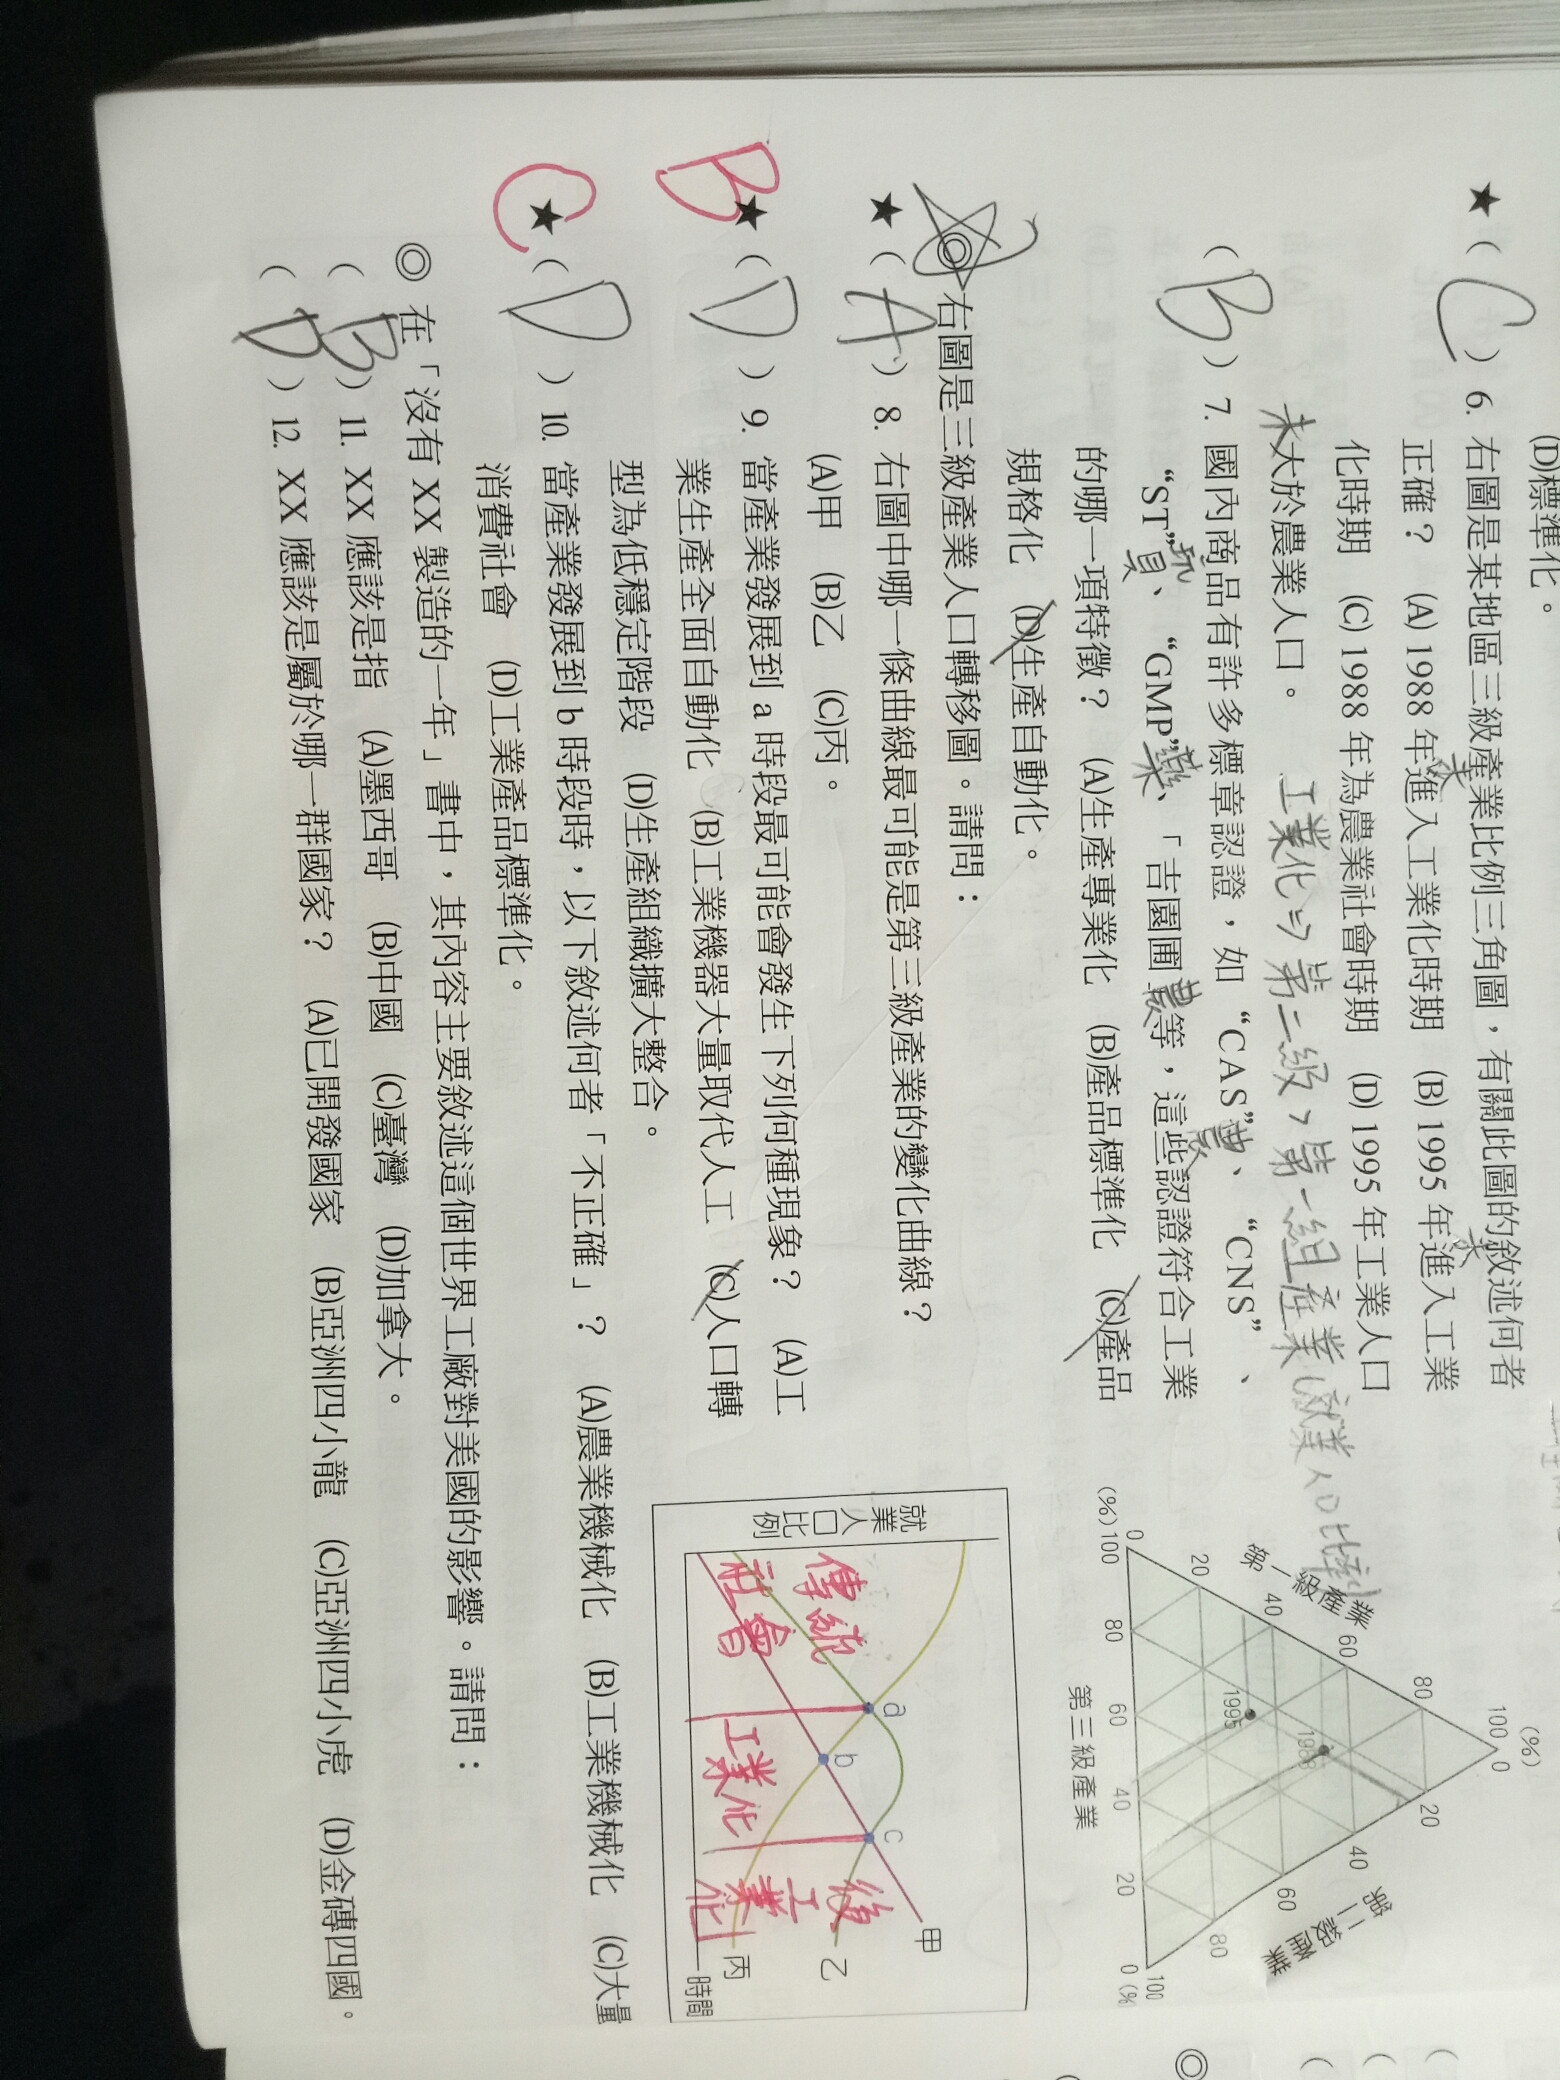 (D)標準化。
★( C )6. 右圖是某地區三級產業比例三角圖，有關此圖的敘述何者
正確？ (A) 1988 年進入工業化時期 (B) 1995 年進入工業
未 未
化時期 (C) 1988 年為農業社會時期 (D) 1995 年工業人口
未大於農業人口。
工業化⇒第二級>第一組產業(就業人口比率)
( B )7. 國內商品有許多標章認證，如 “CAS”農、“CNS”、
“ST”玩具、“GMP”藥、「吉園圃農等，這些認證符合工業
的哪一項特徵？ (A)生產專業化 (B)產品標準化 (C)產品
規格化 (D)生產自動化。
(%)
100 0
80 20
60 40
40 60
20 80
0 100
(%)100 80 60 40 20 0(%
第一級產業
第二級產業
第三級產業
1988
1995
◎右圖是三級產業人口轉移圖。請問：
★( A )8. 右圖中哪一條曲線最可能是第三級產業的變化曲線？
(A)甲 (B)乙 (C)丙。
B ★( D )9. 當產業發展到 a 時段最可能會發生下列何種現象？ (A)工
業生產全面自動化 (B)工業機器大量取代人工 (C)人口轉
型為低穩定階段 (D)生產組織擴大整合。
C ★( D )10. 當產業發展到 b 時段時，以下敘述何者「不正確」？ (A)農業機械化 (B)工業機械化 (C)大量
消費社會 (D)工業產品標準化。
就業人口比例
a
b
c
甲
乙
丙
時間
傳統社會
工業化
後工業化
◎ 在「沒有 XX 製造的一年」書中，其內容主要敘述這個世界工廠對美國的影響。請問：
( B )11. XX 應該是指 (A)墨西哥 (B)中國 (C)臺灣 (D)加拿大。
( D )12. XX 應該是屬於哪一群國家？ (A)已開發國家 (B)亞洲四小龍 (C)亞洲四小虎 (D)金磚四國。
(
(
(
◎